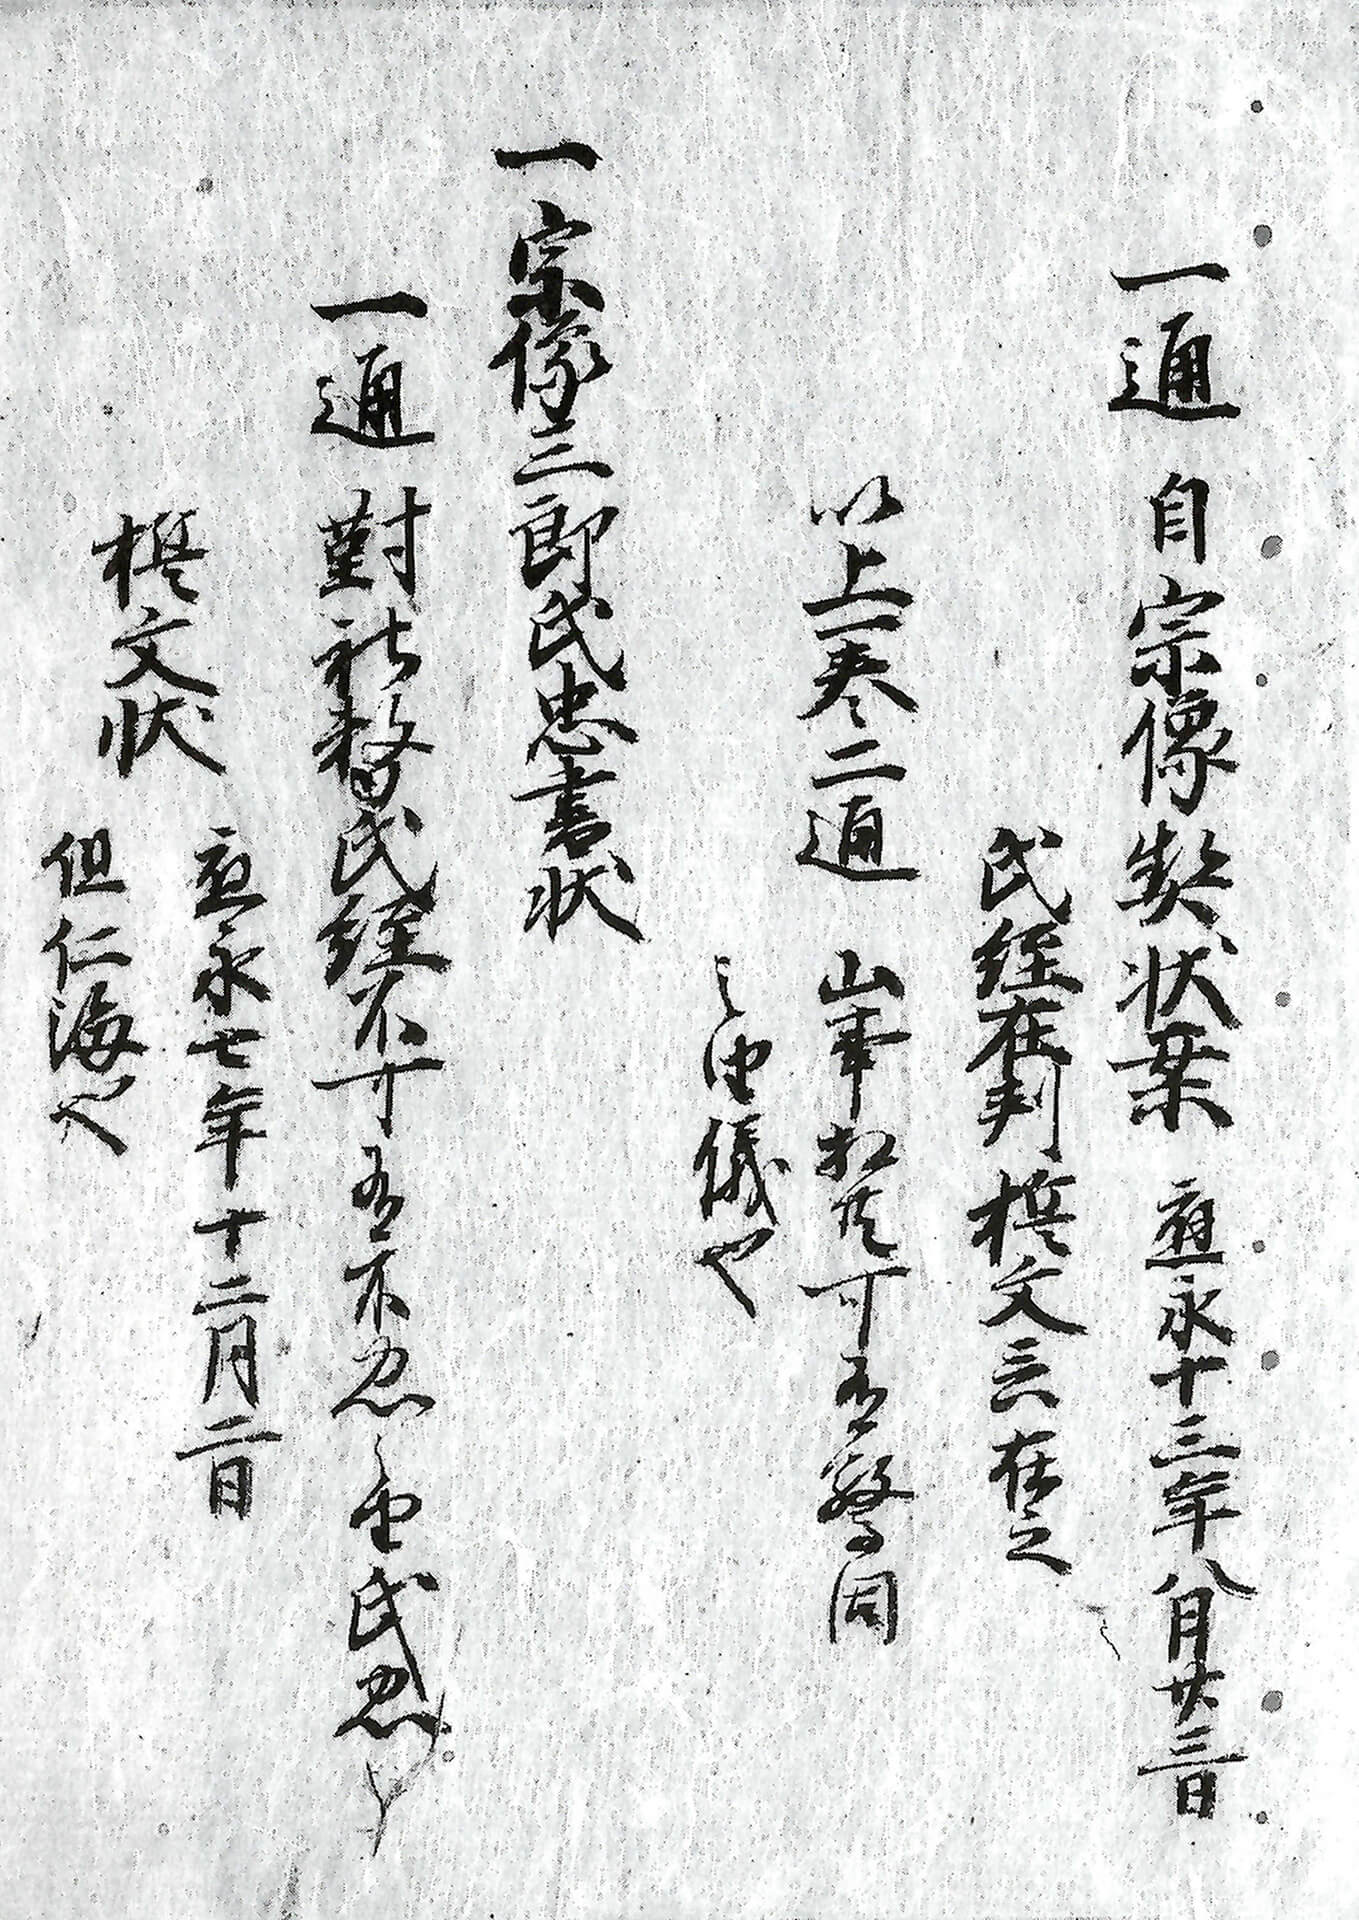 一通 自宗像契状案 應永十三年八月廿三日
氏経在判 校文言在之
以上一巻二通 山事松共可有警固
之由儀也
一宗像三郎氏忠書状
一通 對社務氏経不可有不忠之由氏忠
校文状
應永七年十二月二日
但仁海也